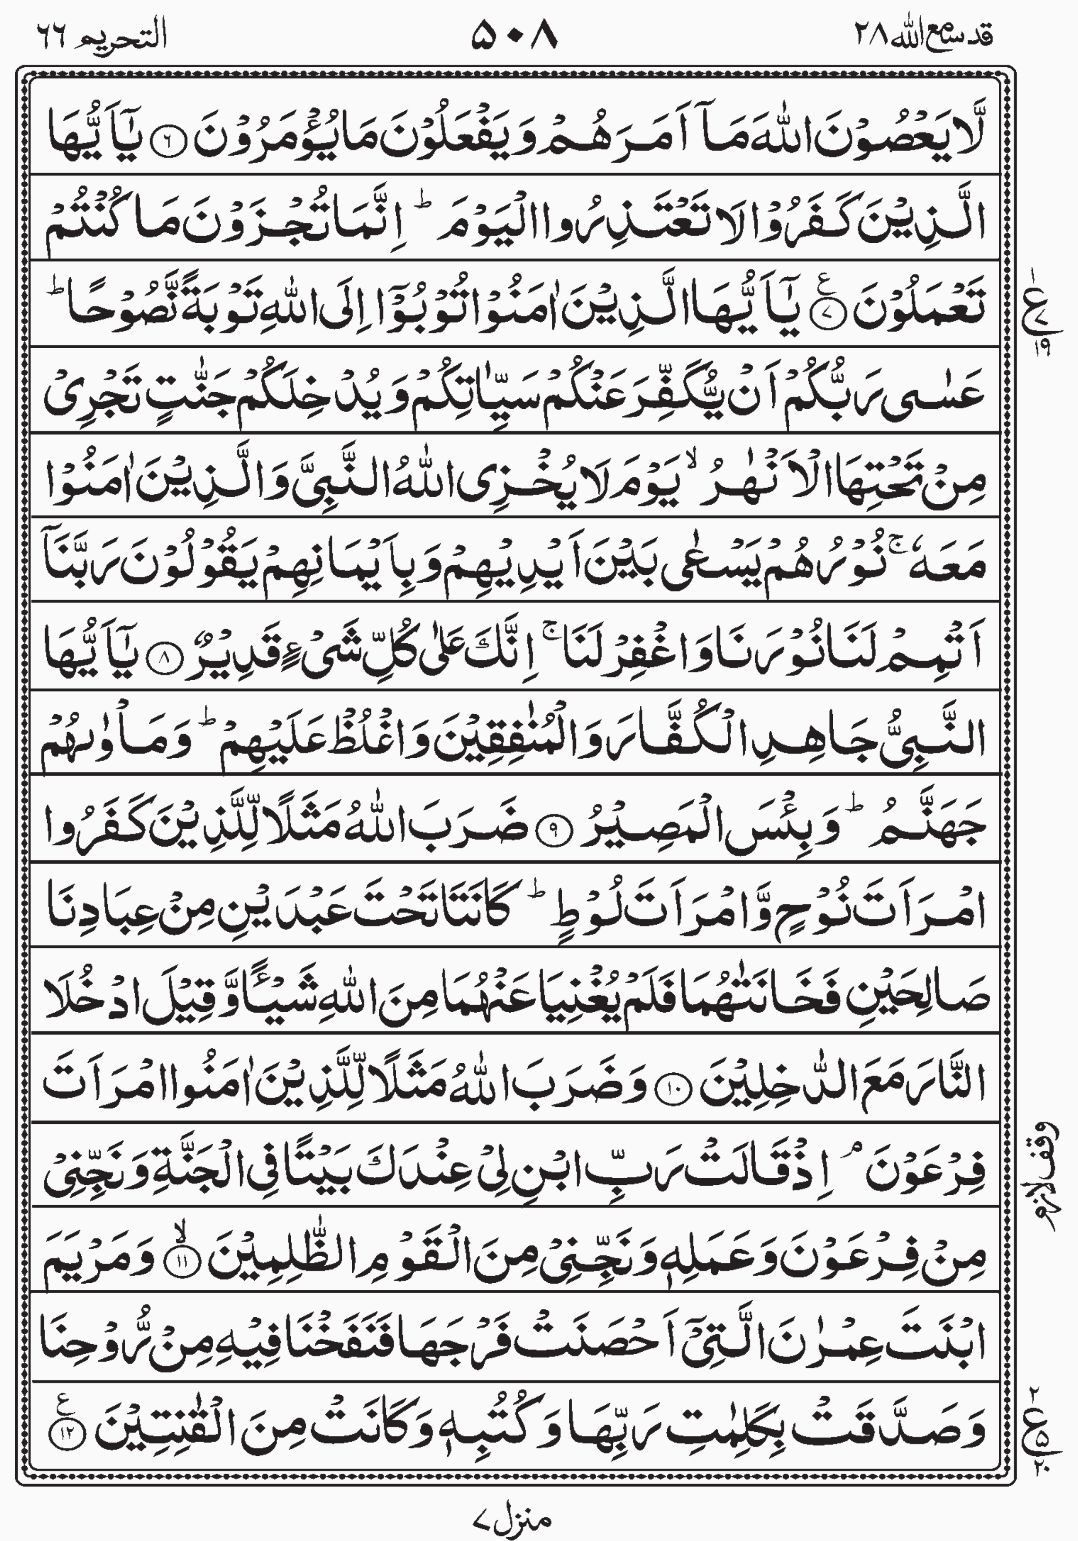 قد سمع الله ٢٨
٥٠٨
التحريم ٦٦
لَّا يَعْصُوْنَ اللّٰهَ مَآ اَمَرَهُمْ وَ يَفْعَلُوْنَ مَا يُؤْمَرُوْنَ ﴿٦﴾ يٰٓاَيُّهَا
الَّذِيْنَ كَفَرُوْا لَا تَعْتَذِرُوا الْيَوْمَ ؕ اِنَّمَا تُجْزَوْنَ مَا كُنْتُمْ
تَعْمَلُوْنَ ﴿٧﴾ ع يٰٓاَيُّهَا الَّذِيْنَ اٰمَنُوْا تُوْبُوْٓا اِلَى اللّٰهِ تَوْبَةً نَّصُوْحًا ؕ
١
ع
٧
١٩
عَسٰى رَبُّكُمْ اَنْ يُّكَفِّرَ عَنْكُمْ سَيِّاٰتِكُمْ وَ يُدْخِلَكُمْ جَنّٰتٍ تَجْرِيْ
مِنْ تَحْتِهَا الْاَنْهٰرُ ۙ يَوْمَ لَا يُخْزِى اللّٰهُ النَّبِيَّ وَ الَّذِيْنَ اٰمَنُوْا
مَعَهٗ ۚ نُوْرُهُمْ يَسْعٰى بَيْنَ اَيْدِيْهِمْ وَ بِاَيْمَانِهِمْ يَقُوْلُوْنَ رَبَّنَآ
اَتْمِمْ لَنَا نُوْرَنَا وَ اغْفِرْ لَنَا ۚ اِنَّكَ عَلٰى كُلِّ شَيْءٍ قَدِيْرٌ ﴿٨﴾ يٰٓاَيُّهَا
النَّبِيُّ جَاهِدِ الْكُفَّارَ وَ الْمُنٰفِقِيْنَ وَ اغْلُظْ عَلَيْهِمْ ؕ وَ مَاْوٰىهُمْ
جَهَنَّمُ ؕ وَ بِئْسَ الْمَصِيْرُ ﴿٩﴾ ضَرَبَ اللّٰهُ مَثَلًا لِّلَّذِيْنَ كَفَرُوا
امْرَاَتَ نُوْحٍ وَّ امْرَاَتَ لُوْطٍ ؕ كَانَتَا تَحْتَ عَبْدَيْنِ مِنْ عِبَادِنَا
صَالِحَيْنِ فَخَانَتٰهُمَا فَلَمْ يُغْنِيَا عَنْهُمَا مِنَ اللّٰهِ شَيْـًٔا وَّ قِيْلَ ادْخُلَا
النَّارَ مَعَ الدّٰخِلِيْنَ ﴿١٠﴾ وَ ضَرَبَ اللّٰهُ مَثَلًا لِّلَّذِيْنَ اٰمَنُوا امْرَاَتَ
فِرْعَوْنَ ۘ اِذْ قَالَتْ رَبِّ ابْنِ لِيْ عِنْدَكَ بَيْتًا فِي الْجَنَّةِ وَ نَجِّنِيْ
وقف لازم
مِنْ فِرْعَوْنَ وَ عَمَلِهٖ وَ نَجِّنِيْ مِنَ الْقَوْمِ الظّٰلِمِيْنَ ۙ﴿١١﴾ وَ مَرْيَمَ
ابْنَتَ عِمْرٰنَ الَّتِيْٓ اَحْصَنَتْ فَرْجَهَا فَنَفَخْنَا فِيْهِ مِنْ رُّوْحِنَا
وَ صَدَّقَتْ بِكَلِمٰتِ رَبِّهَا وَ كُتُبِهٖ وَ كَانَتْ مِنَ الْقٰنِتِيْنَ ﴿١٢﴾ ع
٢
ع
٥
٢٠
منزل ٧